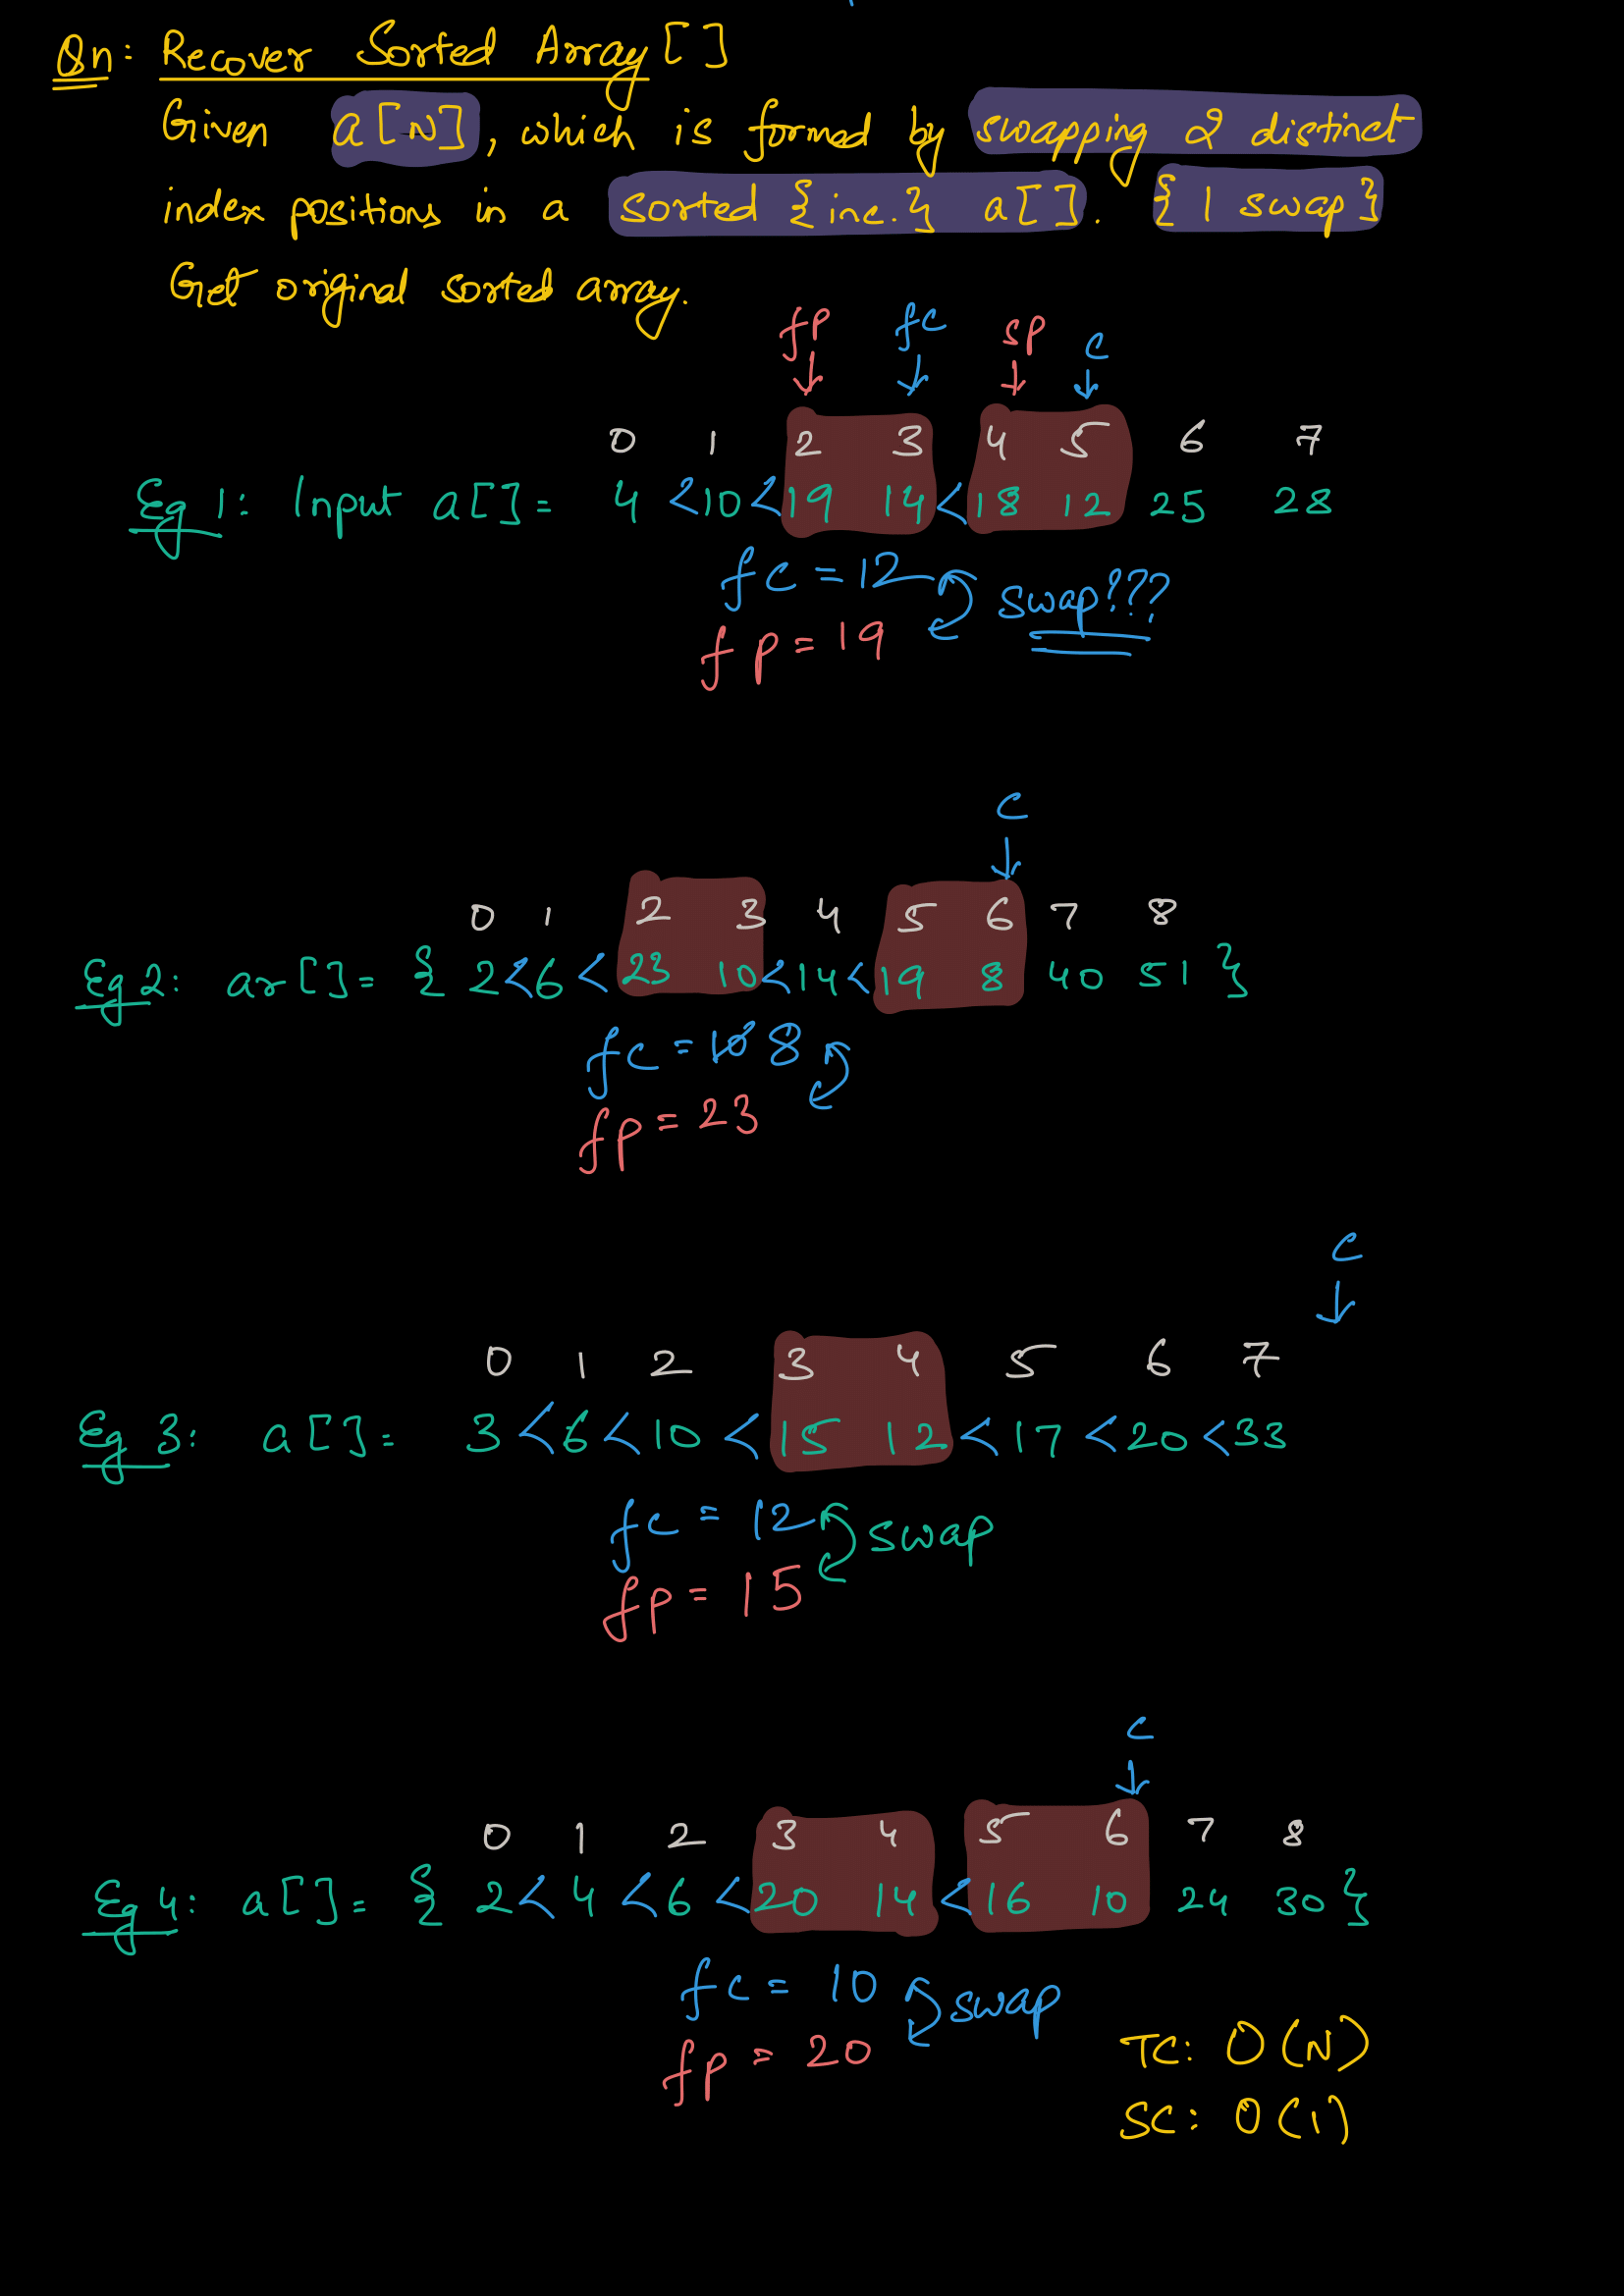 Qn: Recover Sorted Array []
Given a[N], which is formed by swapping 2 distinct
index positions in a sorted {inc.} a[]. {1 swap}
Get original sorted array.
fp fc sp c
0 1 2 3 4 5 6 7
Eg 1: Input a[]= 4 < 10 < 19 14 < 18 12 25 28
fc = 12
swap???
fp = 19
c
0 1 2 3 4 5 6 7 8
Eg 2: ar[]= { 2 < 6 < 23 10 < 14 < 19 8 40 51 }
fc = 10 8
fp = 23
c
0 1 2 3 4 5 6 7
Eg 3: a[]= 3 < 6 < 10 < 15 12 < 17 < 20 < 33
fc = 12 swap
fp = 15
c
0 1 2 3 4 5 6 7 8
Eg 4: a[]= { 2 < 4 < 6 < 20 14 < 16 10 24 30 }
fc = 10 swap
fp = 20
TC: O(N)
SC: O(1)